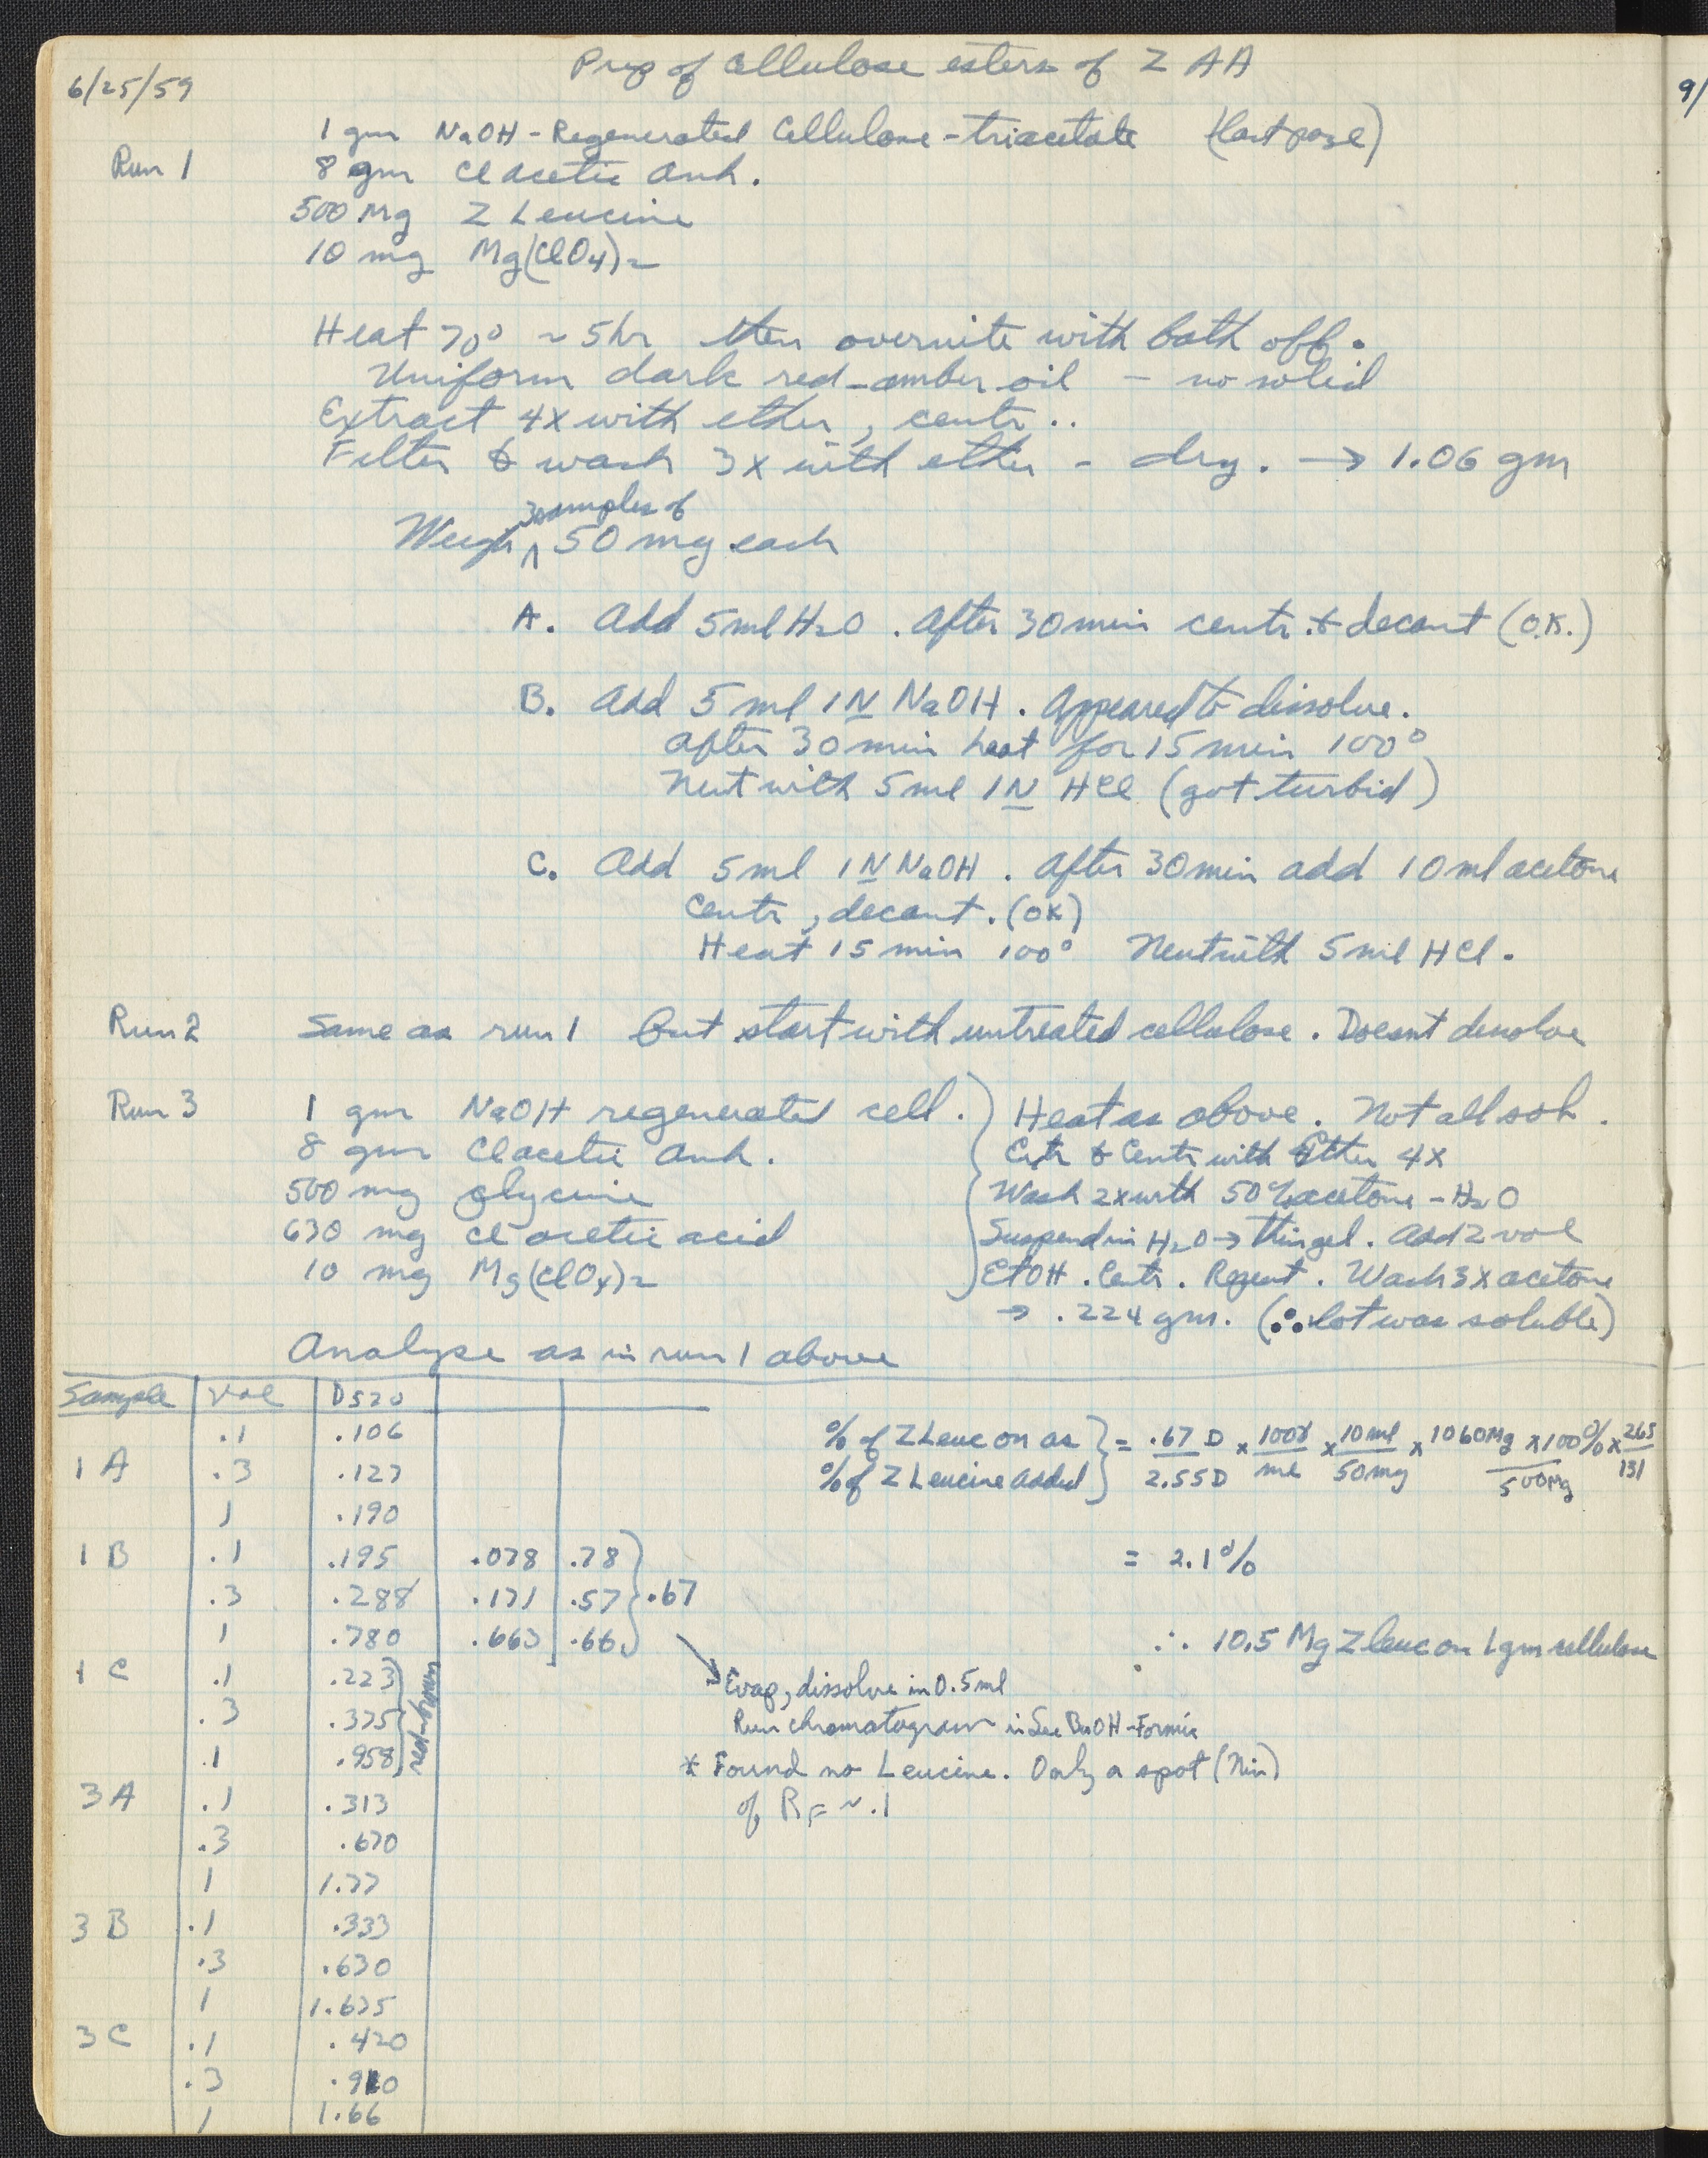 Prep of Cellulose esters of Z AA
6/25/59
1 gm NaOH-Regenerated Cellulose-triacetate (last page)
Run 1
8 gm Cl acetic anh.
500 Mg Z Leucine
10 mg Mg(ClO4)2
Heat 70° ~ 5hr then overnite with bath off.
Uniform dark red-amber oil - no solid
Extract 4x with ether, centr..
Filter & wash 3x with ether - dry. → 1.06 gm
3 samples of
Weigh ∧ 50 mg each
A. Add 5ml H2O. After 30 min centr. & decant (O.K.)
B. Add 5 ml 1N NaOH. Appeared to dissolve.
After 30 min heat for 15 min 100°
Neut with 5 ml 1N HCl (got turbid)
C. Add 5ml 1N NaOH. After 30 min add 10 ml acetone
Centr, decant. (OK)
Heat 15 min 100° Neut with 5 ml HCl.
Run 2 Same as run 1 but start with untreated cellulose. Doesnt dissolve
Run 3 1 gm NaOH regenerated cell. Heat as above. Not all sol.
8 gm Cl acetic anh. Extr & Centr with Ether 4x
500 mg glycine Wash 2x with 50% acetone - H2O
630 mg Cl acetic acid Suspend in H2O → thin gel. Add 2 vol
10 mg Mg(ClO4)2 EtOH. Centr. Repeat. Wash 3x acetone
→ .224 gm. (∴ lot was soluble)
Analyze as in run 1 above
Sample Vol D520
.1 .106
1 A .3 .127
1 .190
% of Z Leuc on as % of Z Leucine Added } = .67 D / 2.55D x 100γ / ml x 10 ml / 50mg x 1060Mg x 100% / 500Mg x 265 / 131
1 B .1 .195 .078 .78 = 2.1%
.3 .288 .171 .57 } .67
1 .780 .663 .66 ∴ 10.5 Mg Z leuc on 1 gm cellulose
1 C .1 .223
.3 .375 red-brown
.1 .958
Evap, dissolve in 0.5 ml
Run chromatogram in Sec BuOH-Formic
* Found no Leucine. Only a spot (Nin)
of RF = ~ .1
3 A .1 .313
.3 .670
1 1.77
3 B .1 .333
.3 .630
1 1.675
3 C .1 .420
.3 .910
1 1.66
9/